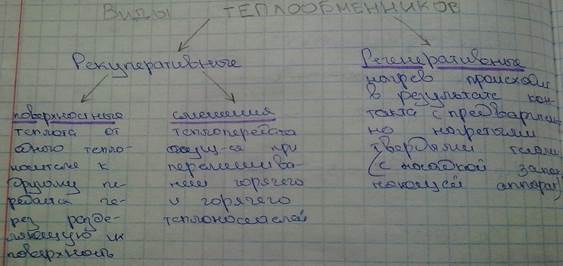 Виды ТЕПЛООБМЕННИКОВ
Рекуперативные
поверхностные
теплота от
одного тепло-
носителя к
другому пе-
редается че-
рез разде-
ляющую их
поверхность
смешения
теплопередача
осущ-ся при
перемешива-
нии горячего
и горячего
теплоносителей
Регенеративные
нагрев происходит
в результате кон-
такта с предварител-
но нагретыми
твердыми телами
(с насадкой запол
няющей аппарат)